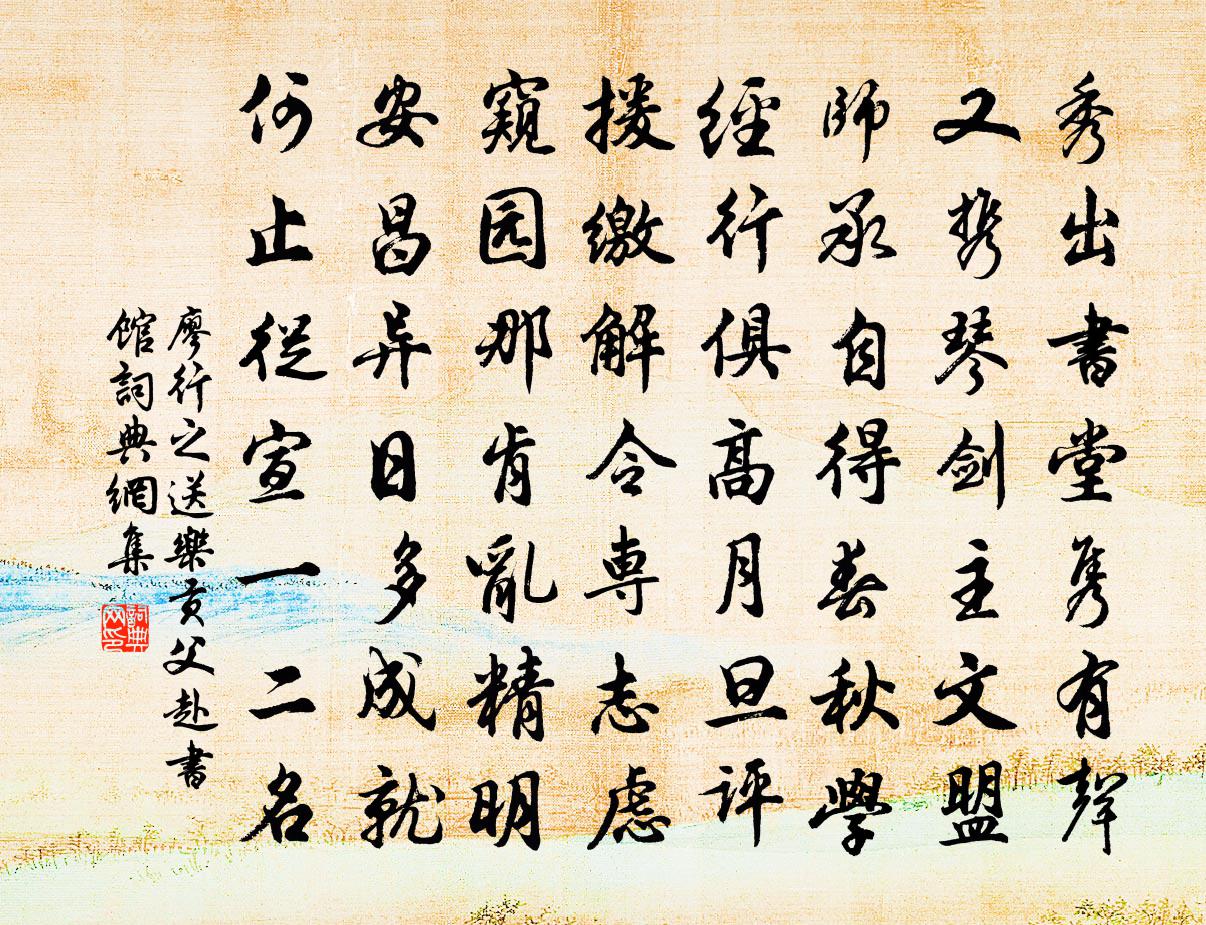 秀出書堂隽有聲
又携琴剑主文盟
師承自得春秋學
經行俱高月旦評
援缴解令専志慮
窺园那肯亂精明
安昌异日多成就
何止從宣一二名
廖行之送樂贡父赴書
館詞典網集
詞典网印